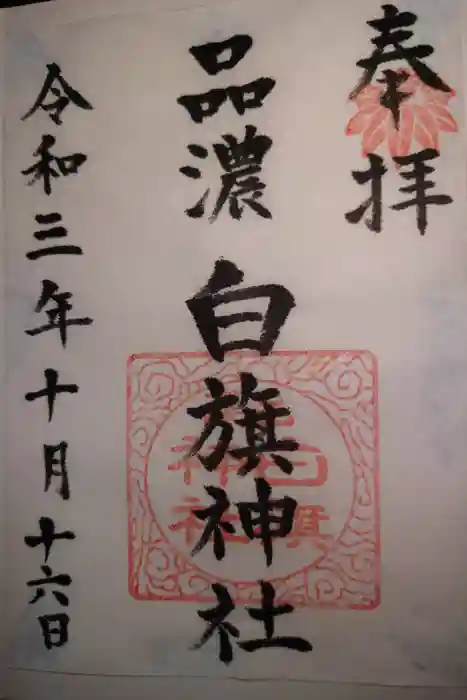 奉拝
品濃 白旗神社
令和三年十月十六日
白旗
神社